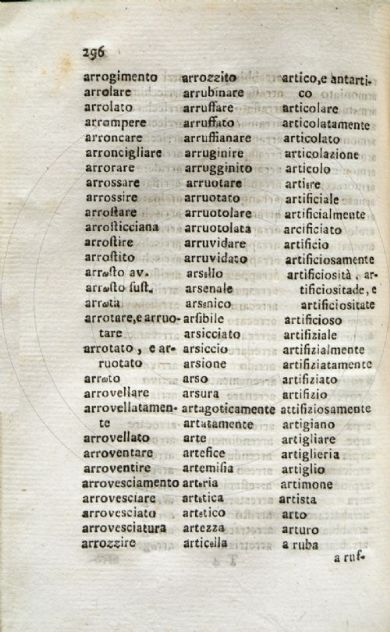 296
arrogimento
arrolare
arrolato
arrompere
arroncare
arroncigliare
arrorare
arrossare
arrossire
arrostare
arrosticciana
arrostire
arrostito
arrosto av.
arrosto sust.
arrota
arrotare, e arruo-
tare
arrotato, e ar-
ruotato
arroto
arrovellare
arrovellatamen-
te
arrovellato
arroventare
arroventire
arrovesciamento
arrovesciare
arrovesciato
arrovesciatura
arrozzire
arrozzito
arrubinare
arruffare
arruffato
arruffianare
arruginire
arrugginito
arruotare
arruotato
arruotolare
arruotolata
arruvidare
arruvidato
arsello
arsenale
arsenico
arsibile
arsicciato
arsiccio
arsione
arso
arsura
artagoticamente
artatamente
arte
artefice
artemisia
arteria
artetica
artetico
artezza
articella
artico, e antarti-
co
articolare
articolatamente
articolato
articolazione
articolo
artiere
artificiale
artificialmente
arcificiato
artificio
artificiosamente
artificiosità, ar-
tificiositade, e
artificiositate
artificioso
artifiziale
artifizialmente
artifiziatamente
artifiziato
artifizio
attifiziosamente
artigiano
artigliare
artiglieria
artiglio
artimone
artista
arto
arturo
a ruba
a ruf-